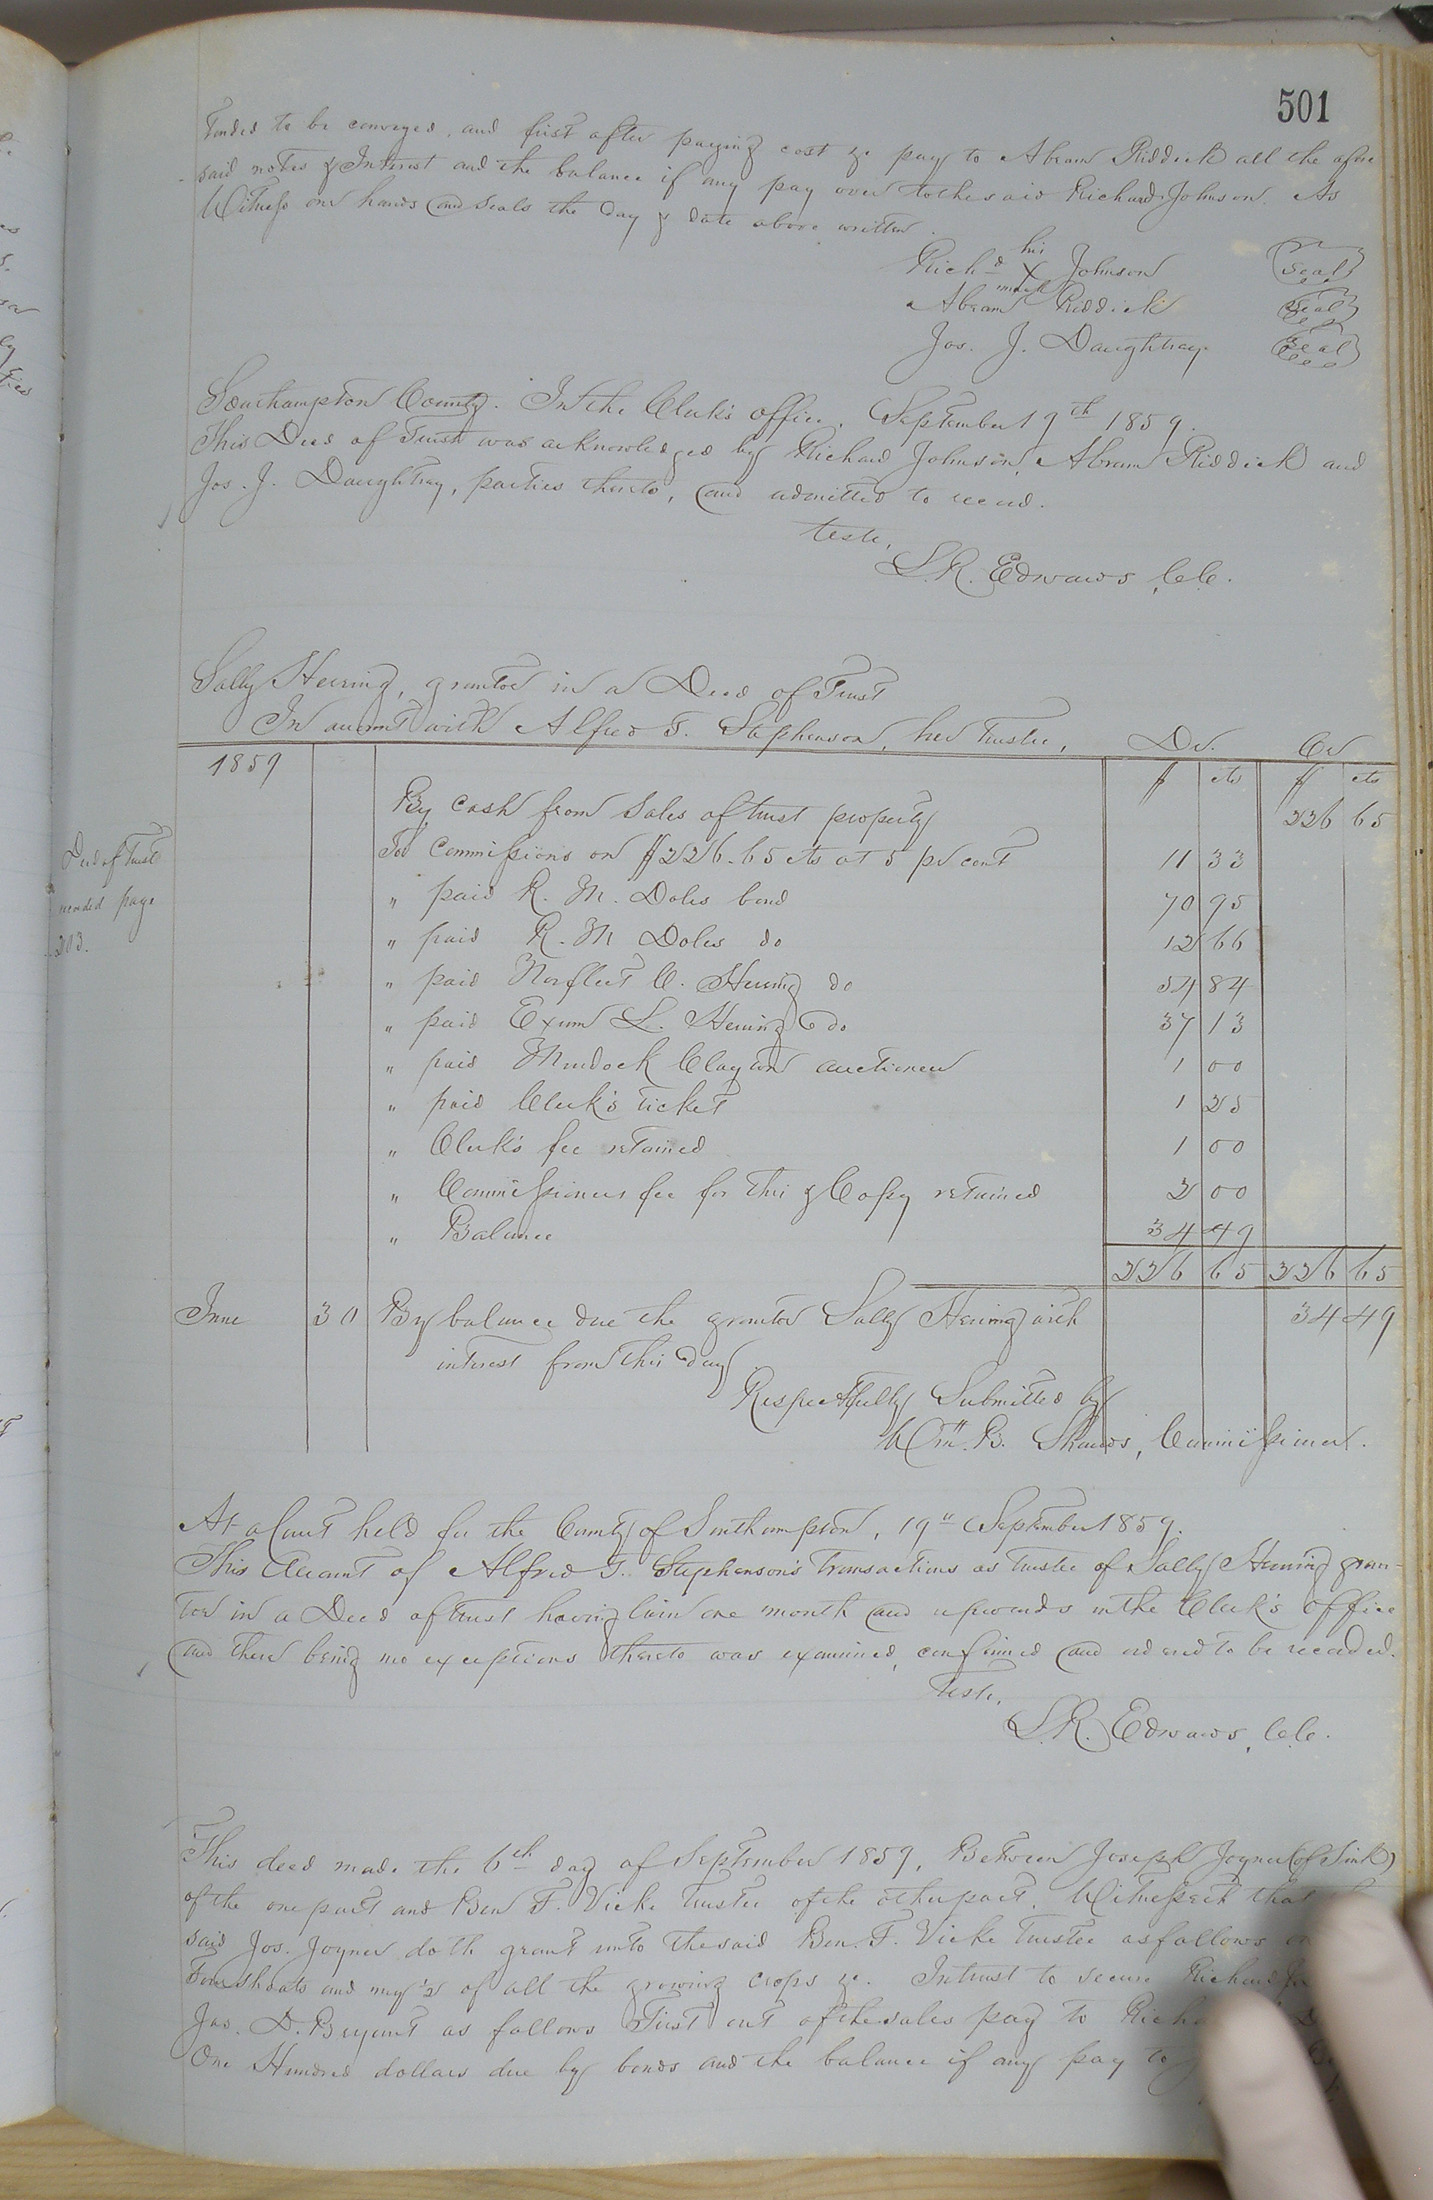 501
tended to be conveyed, and first after paying cost &c pay to Abram Riddick all the afore
said notes & Interest and the balance if any pay over to the said Richard Johnson. As
Witness our hands and seals the day & date above written.
his
Richd X Johnson (Seal)
mark
Abram Riddick (Seal)
Jos. J. Daughtrey (Seal)
Southampton County. In the Clerk's office, September 19th 1859.
This Deed of Trust was acknowledged by Richard Johnson, Abram Riddick and
Jos. J. Daughtrey, parties thereto, and admitted to record.
teste,
L.R. Edwards, C.C.
Sally Herring, grantor in a Deed of Trust
In account with Alfred T. Stephenson, her Trustee, Dr. Cr
1859 $ cts $ cts
By cash from Sales of trust property 226 65
To Commissions on $226.65 cts at 5 pr cent 11 33
" paid R. M. Doles bond 70 95
" paid R. M Doles do 12 66
" paid Norfleet C. Herring do 54 84
" paid Exum L. Herring do 37 13
" paid Murdock Clayton auctioneer 1 00
" paid Clerk's ticket 1 25
" Clerk's fee retained 1 00
" Commissioners fee for this & Copy retained 2 00
" Balance 34 49
226 65 226 65
June 30 By balance due the grantor Sally Herring with 34 49
interest from this day.
Respectfully Submitted by
Wm. B. Shands, Commissioner.
Deed of Trust
recorded page
203.
At a Court held for the County of Southampton, 19" September 1859.
This Account of Alfred T. Stephenson's transactions as trustee of Sally Herring gran-
tor in a Deed of trust having lain one month and upwards in the Clerk's office
and there being no exceptions thereto was examined, confirmed and ordered to be recorded.
Teste,
L.R. Edwards, C.C.
This deed made the 6th day of September 1859, Between Joseph Joyner (of Jink)
of the one part and Ben F. Vicke Trustee of the other part, Witnesseth that
said Jos. Joyner doth grant unto the said Ben. F. Vicke Trustee as follows
Four shoats and my ½ of all the growing crops &c. In trust to secure Richard
Jas. D. Bryant as follows First out of the sales pay to
One Hundred dollars due by bonds and the balance if any pay to